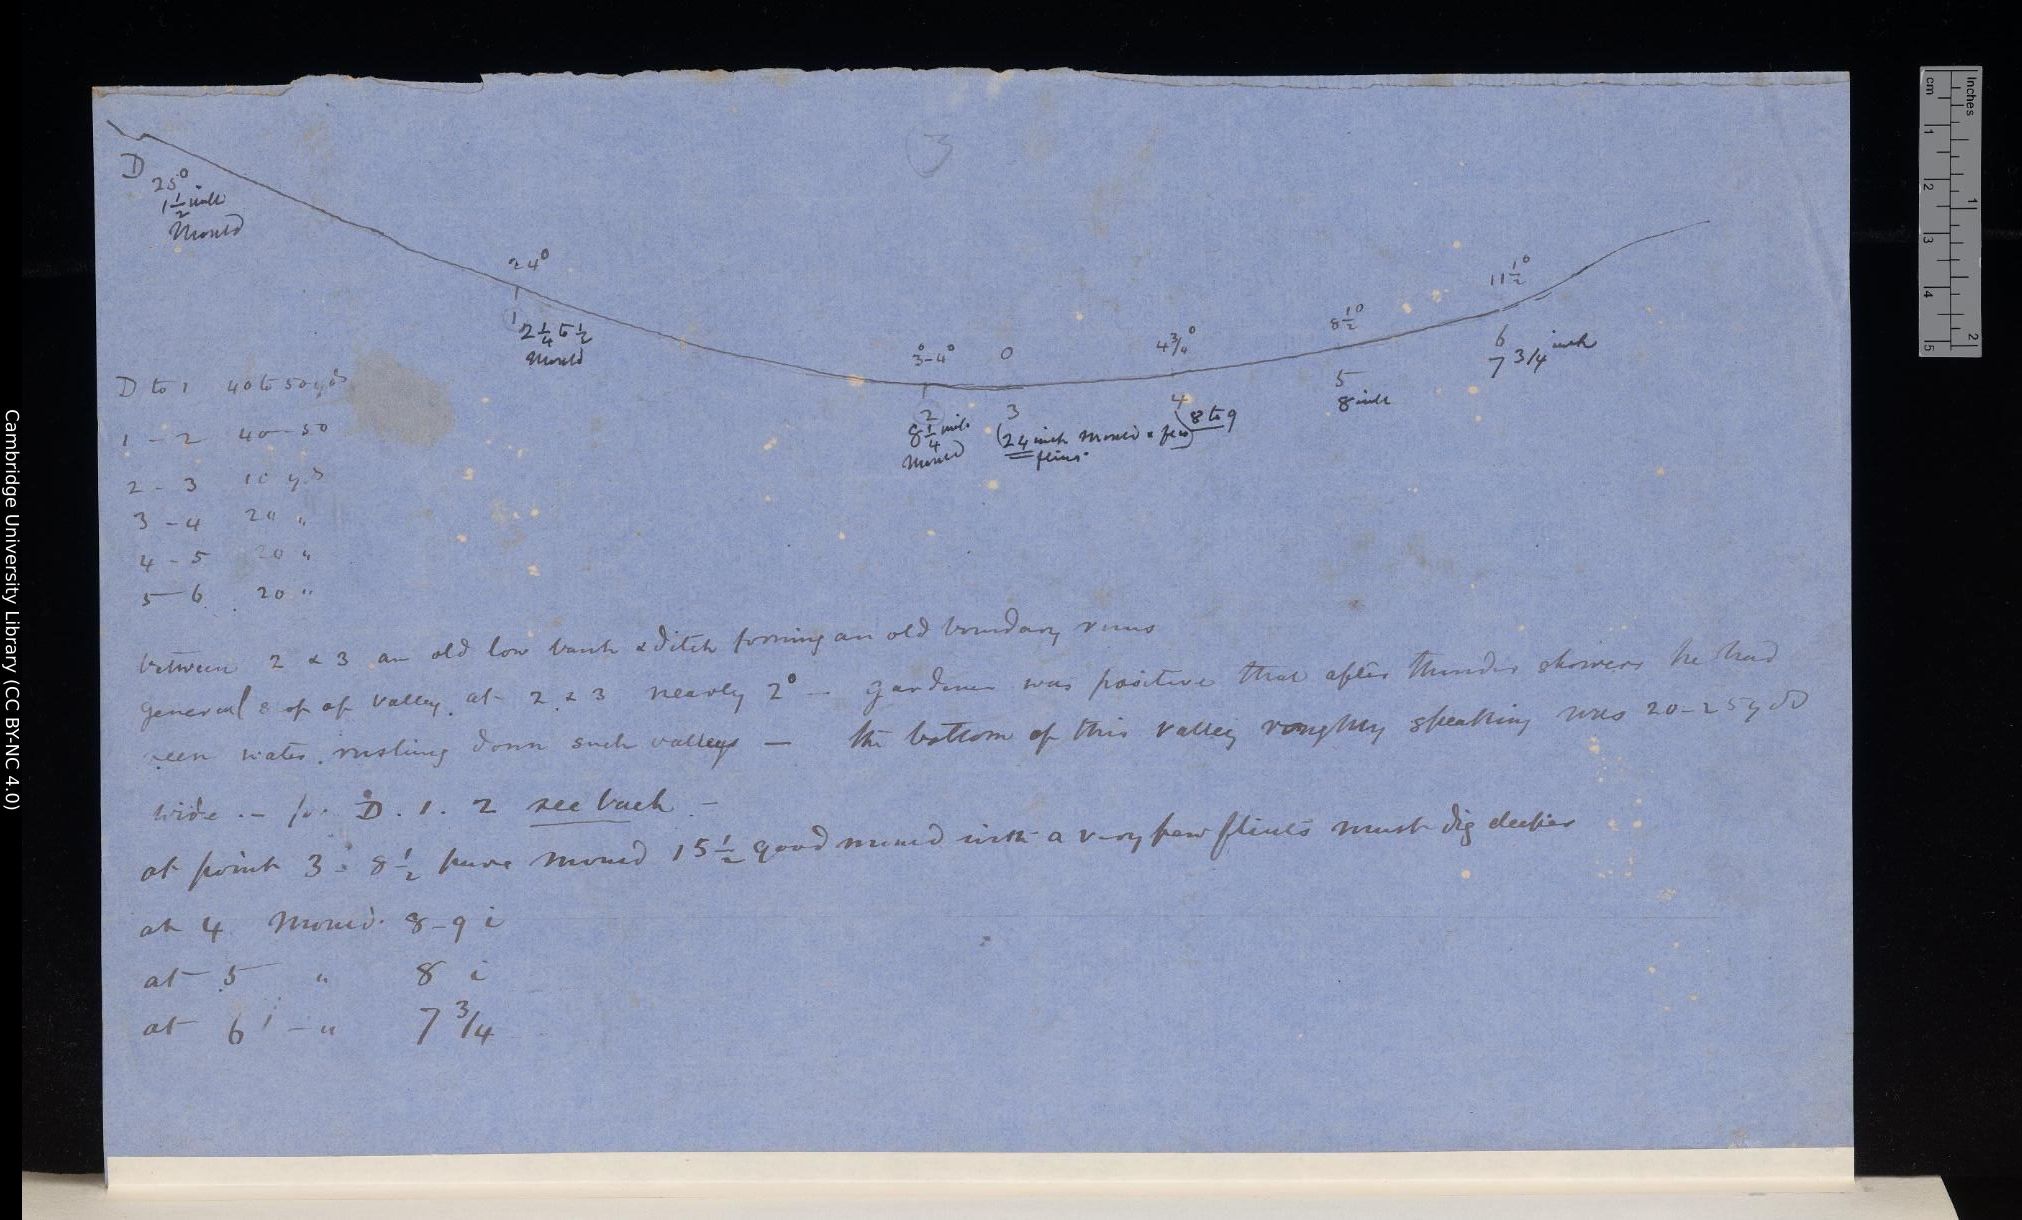 3
D
25°
1 1/2 inch
Mould
24°
1
2 1/4 to 1/2
Mould
3-4°
2
8 1/4 inch
Mould
0
3
(24 inch Mould & few)
flints
4 3/4°
4
8 to 9
8 1/2°
5
8 inch
11 1/2°
6
7 3/4 inch
D to 1 40 to 50 yds
1 - 2 40-50
2 - 3 10 yds
3 - 4 20 "
4 - 5 20 "
5 - 6 20 "
between 2 & 3 an old low bank & ditch forming an old boundary runs
general of valley at 2 & 3 nearly 2° — gardener was positive that after thunder showers he had
seen water rushing down such valleys — the bottom of this valley roughly speaking was 20-25 yds
wide. — for D. 1. 2 see back —
at point 3 - 8 1/2 pure mould 15 1/2 good mould with a very few flints must dig deeper
at 4 Mould. 8-9 i
at 5 " 8 i
at 6 - " 7 3/4
inches
cm
1
2
3
4
5
1
2
Cambridge University Library (CC BY-NC 4.0)